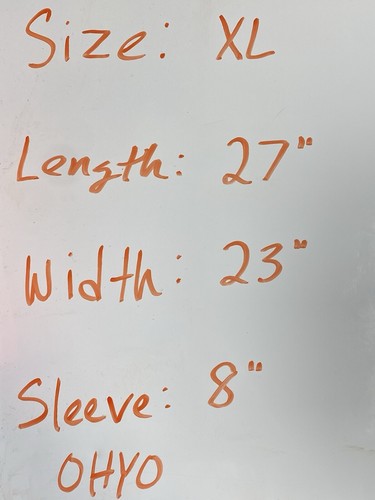 Size: XL
Length: 27"
Width: 23"
Sleeve: 8"
OHYO